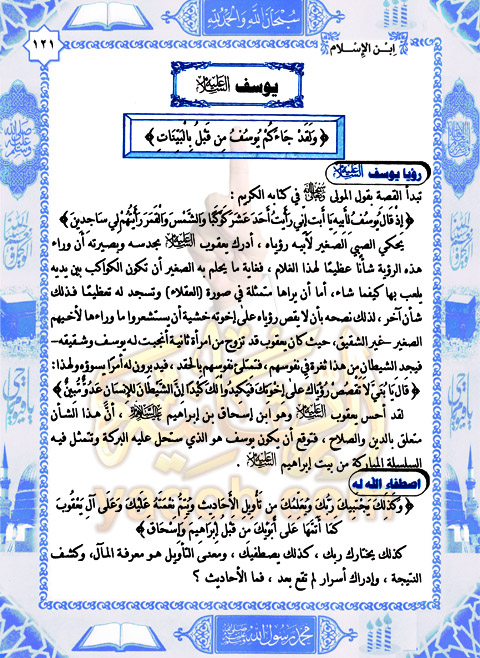 سبحان الله والحمد لله
ابن الإسلام
١٢١
يوسف عليه السلام
﴿ وَلَقَدْ جَاءَكُمْ يُوسُفُ مِن قَبْلُ بِالْبَيِّنَاتِ ﴾
رؤيا يوسف عليه السلام
تبدأ القصة بقول المولى في كتابه الكريم :
﴿ إِذْ قَالَ يُوسُفُ لِأَبِيهِ يَا أَبَتِ إِنِّي رَأَيْتُ أَحَدَ عَشَرَ كَوْكَبًا وَالشَّمْسَ وَالْقَمَرَ رَأَيْتُهُمْ لِي سَاجِدِينَ ﴾
يحكي الصبي الصغير لأبيه رؤياه ، أدرك يعقوب عليه السلام بحدسه وبصيرته أن وراء
هذه الرؤية شأنًا عظيمًا لهذا الغلام ، فغاية ما يحلم به الصغير أن تكون الكواكب بين يديه
يلعب بها كيفما شاء، أما أن يراها متمثلة في صورة (العقلاء) وتسجد له تعظيمًا فذلك
شأن آخر ، لذلك نصحه بأن لا يقص رؤياه على إخوته خشية أن يستشعروا ما وراءها لأخيهم
الصغير -غير الشقيق، حيث كان يعقوب قد تزوج من امرأة ثانية أنجبت له يوسف وشقيقه-
فيجد الشيطان من هذا ثغرة في نفوسهم ، فتمتلئ نفوسهم بالحقد ، فيدبرون له أمرًا يسوؤه ولهذا :
﴿ قَالَ يَا بُنَيَّ لَا تَقْصُصْ رُؤْيَاكَ عَلَى إِخْوَتِكَ فَيَكِيدُوا لَكَ كَيْدًا إِنَّ الشَّيْطَانَ لِلْإِنسَانِ عَدُوٌّ مُّبِينٌ ﴾
لقد أحس يعقوب عليه السلام وهو ابن إسحاق بن إبراهيم ، أنَّ هذا الشأن
متعلق بالدين والصلاح ، فتوقع أن يكون يوسف هو الذي ستحل عليه البركة وتتمثل فيه
السلسلة المباركة من بيت إبراهيم عليه السلام .
اصطفاء الله له
﴿ وَكَذَلِكَ يَجْتَبِيكَ رَبُّكَ وَيُعَلِّمُكَ مِن تَأْوِيلِ الْأَحَادِيثِ وَيُتِمُّ نِعْمَتَهُ عَلَيْكَ وَعَلَى آلِ يَعْقُوبَ
كَمَا أَتَمَّهَا عَلَى أَبَوَيْكَ مِن قَبْلُ إِبْرَاهِيمَ وَإِسْحَاقَ ﴾
كذلك يختارك ربك ، كذلك يصطفيك ، ومعنى التأويل هو معرفة المآل، وكشف
النتيجة ، وإدراك أسرار لم تقع بعد ، فما الأحاديث ؟
محمد رسول الله